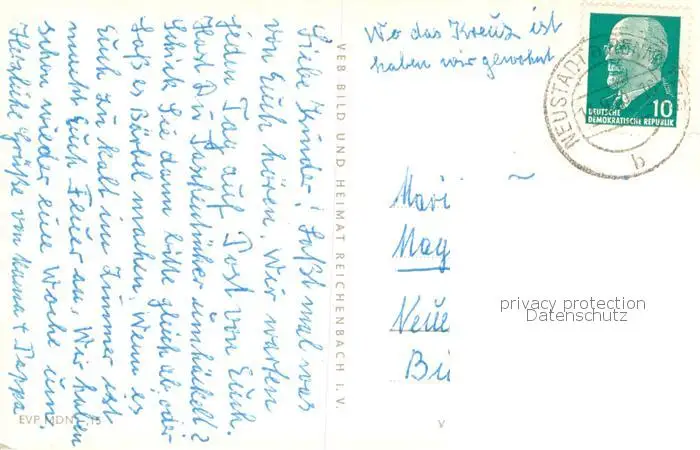 Liebe Kinder! Laßt mal was
von Euch hören. Wir warten
jeden Tag auf Post von Euch.
Hast Du Taschentücher umhäkelt?
Schick sie dann bitte gleich ab, oder
laß es Bärbel machen. Wenn es
Euch zu kalt im Zimmer ist
macht Euch Feuer an. Wir haben
schon wieder eine Woche um.
Herzliche Grüße von Mama + Pappa
EVP MDN -,15
VEB BILD UND HEIMAT REICHENBACH I. V.
V
Wo das Kreuz ist
haben wir gewohnt
DEUTSCHE
DEMOKRATISCHE REPUBLIK
10
NEUSTADT
b
Mari
May
Neue
Bü
privacy protection
Datenschutz